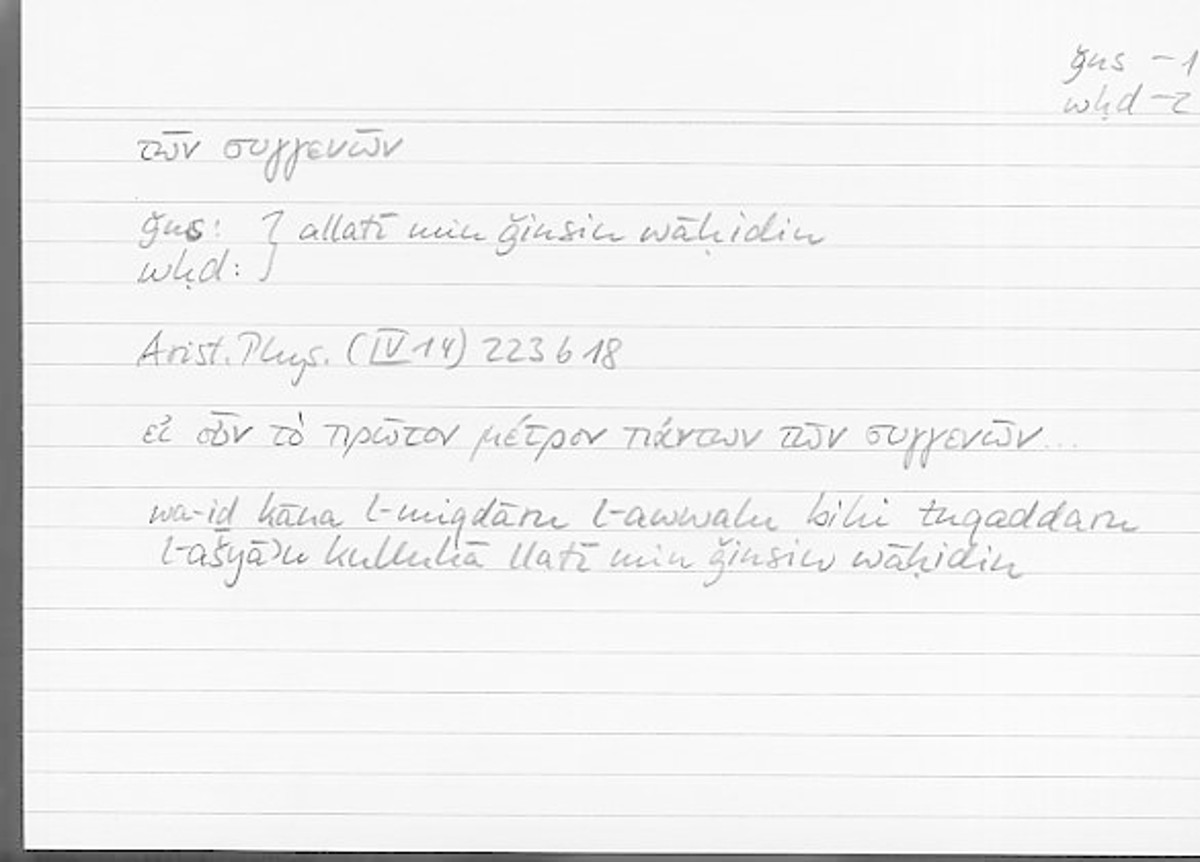 ǧns – 1
wḥd – 2
τῶν συγγενῶν
ǧns: } allatī min ǧinsin wāḥidin
wḥd:
Arist. Phys. (IV 14) 223 b 18
εἰ οὖν τὸ πρῶτον μέτρον πάντων τῶν συγγενῶν...
wa-iḏ kāna l-miqdāru l-awwalu bihī tuqaddaru
l-ašyāʾu kulluhā llatī min ǧinsin wāḥidin